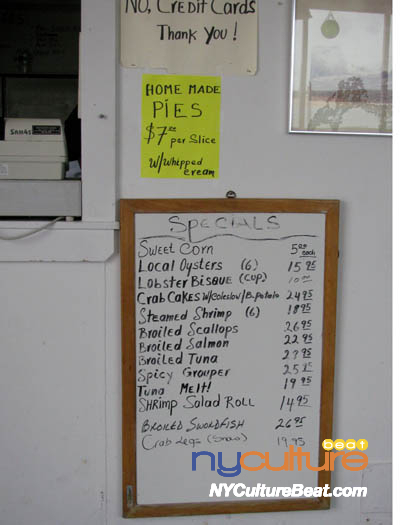 NO, Credit Cards
Thank You!
HOME MADE
PIES
$7.00 per Slice
W/Whipped
cream
SAM4S
SPECIALS
Sweet Corn 5.00 each
Local Oysters (6) 15.95
Lobster Bisque (Cup) 10.00
Crab Cakes W/Coleslow/B.potato 24.95
Steamed Shrimp (6) 18.95
Broiled Scallops 26.95
Broiled Salmon 22.95
Broiled Tuna 23.95
Spicy Grouper 25.95
Tuna MELT! 19.95
SHRIMP Salad ROLL 14.95
BROILED SWORDFISH 26.95
Crab Legs (Snow) 19.95
nyculture beat
NYCultureBeat.com